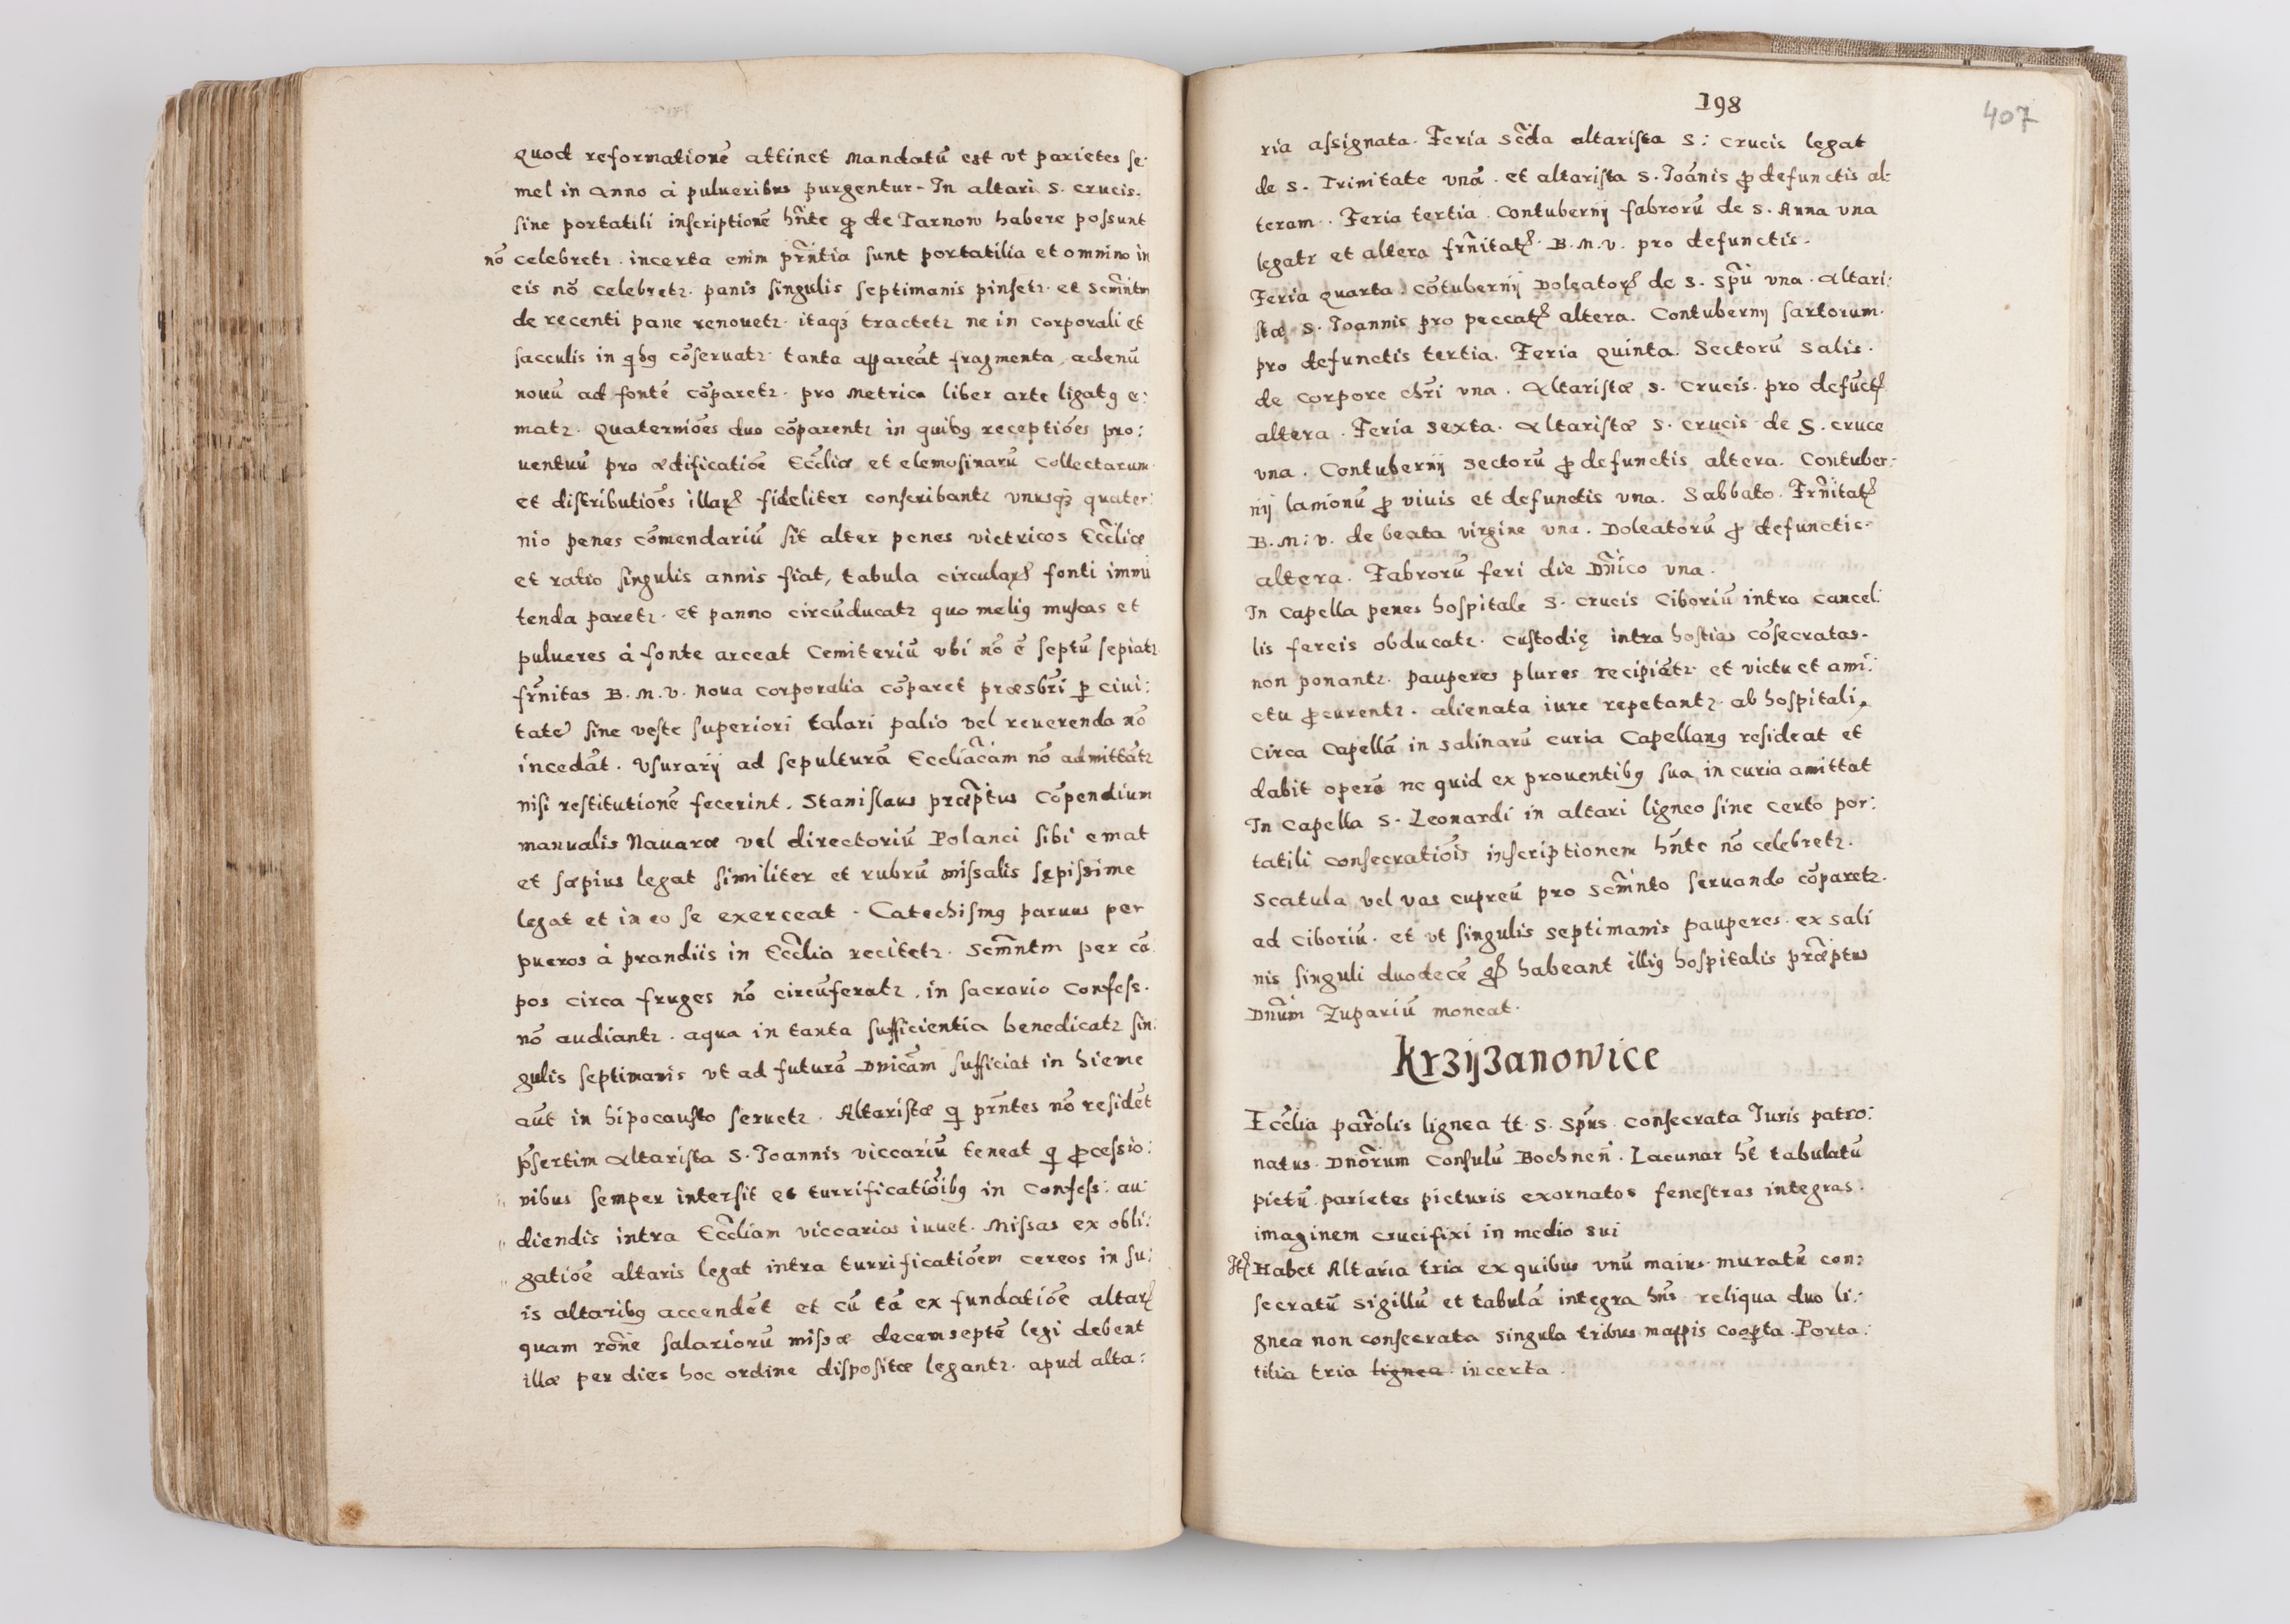 quod reformationē attinet Mandatū est vt parietes se:
mel in Anno à pulueribus purgentur. In altari S. crucis.
sine portatili inscriptionē hñte ꝙ de Tarnow habere possunt
nō celebretr. incerta enim prñtia sunt portatilia et omnino in
eis nō celebretr. panis singulis septimanis pinsetr. et Scmñtm
de recenti pane renouetr. itaqꝫ tractetr ne in corporali et
sacculis in qbꝰ cōseruatr. tanta appareāt fragmenta, achenū
nouū ad fontē cōparetr. pro Metrica liber arte ligatꝰ e:
matr. Quaterniōes duo cōparentr in quibꝰ receptiōes pro:
uentuū pro ædificatiōe Ecc̃liæ et elemosinarū Collectarum.
et distributiōes illarꝝ fideliter conscribantr vnusqꝫ quater:
nio penes cōmendariū sit alter penes victricos Ecc̃liæ
et ratio singulis annis fiat, tabula circularꝭ fonti immi
tenda paretr. et panno circūducatr quo meliꝰ muscas et
pulueres à fonte arceat Cemiteriū vbi nō ē septū sepiatr.
frñitas B. M. V. Noua corporalia cōparet præsbr̃i ꝑ ciui:
tatē sine veste superiori talari palio vel reuerenda nō
incedāt. Vsurarij ad sepulturā Eccliãcam nō admittātr
nisi restitutionē fecerint. Stanislaus præp̃tus Cōpendium
manualis Nauaræ vel directoriū Polanci sibi emat
et sæpius legat similiter et rubrū missalis sępissime
legat et in eo se exerceat. Catechismꝰ paruus per
pueros à prandiis in Ecc̃lia recitetr. Scmñtm per cā
pos circa fruges nō circūferatr. in sacrario Confess.
nō audiantr. aqua in tanta sufficientia benedicatr sin:
gulis septimanis vt ad futurā Dnicām sufficiat in hieme
aūt in hipocausto seruetr. Altaristæ q̃ prñtes nō residēt
p̃sertim Altarista S. Joannis viccariū teneat q̃ ꝓcessio:
nibus semper intersit et turrificatiōibꝰ in Confess: au:
diendis intra Ecc̃liam viccarios iuuet. Missas ex obli:
gatiōe altaris legat intra turrificatiōem cereos in su:
is altaribꝰ accendēt et cū tā ex fundatiōe altarꝭ
quam rōne salariorū missæ decemseptē legi debent
illæ per dies hoc ordine dispositæ legantr. apud alta:
198
407
ria assignata. Feria scd̃a altarista S: crucis legat
de S. Trinitate vnā. et altarista S. Joānis ꝓ defunctis al:
teram. Feria tertia. Contubernij fabrorū de S. Anna vna
legatr et altera frñitatꝭ B. M. V. pro defunctis.
Feria quarta. cōtubernij Doleatorꝝ de S. Spũ vna. Altari:
stæ S. Joannis pro peccatꝭ altera. Contubernij sartorum.
pro defunctis tertia. Feria quinta. Sectorū Salis.
de corpore chr̃i vna. Altaristæ S. crucis. pro defūctꝭ
altera. Feria sexta. Altaristæ S. crucis de S. cruce
vna. Contubernij sectorū ꝓ defunctis altera. Contuber:
nij lanionū ꝓ viuis et defunctis vna. Sabbato. Frñitatꝭ
B. M: V. de beata virgine vna. Doleatorū ꝓ defunctis.
altera. Fabrorū feri die Dñico vna.
In Capella penes hospitale S. crucis Ciboriū intra cancel:
lis fereis obducatr. custodię intra hostias cōsecratas.
non ponantr. pauperes plures recipiātr. et victu et ami:
ctu ꝓcurentr. alienata iure repetantr. ab hospitali.
Circa Capellā in Salinarū curia Capellanꝰ resideat et
dabit operā ne quid ex prouentibꝰ sua in curia amittat
In Capella S. Leonardi in altari ligneo sine certo por:
tatili consecratiōis inscriptionem hñte nō celebretr.
Scatula vel vas cupreū pro Scmñto seruando cōparetr.
ad Ciboriū. et vt singulis septimanis pauperes. ex Sali
nis singuli duodecē gꝭ habeant illiꝰ hospitalis præp̃tus
Dñum Zupariū moneat.
Krzijzanowice
Ecc̃lia paroĩlis lignea tt. S. Spũs consecrata Juris patro:
natus. Dnōrum Consulū Bochneñ. Lacunar ht̃ tabulatū
pictū parietes picturis exornatos fenestras integras.
imaginem crucifixi in medio sui
Itꝭ Habet Altaria tria ex quibus vnū maius muratū con:
secratū Sigillū et tabulā integra hñs reliqua duo li:
gnea non consecrata singula tribus mappis cooꝑta. Porta:
tilia tria lignea incerta.